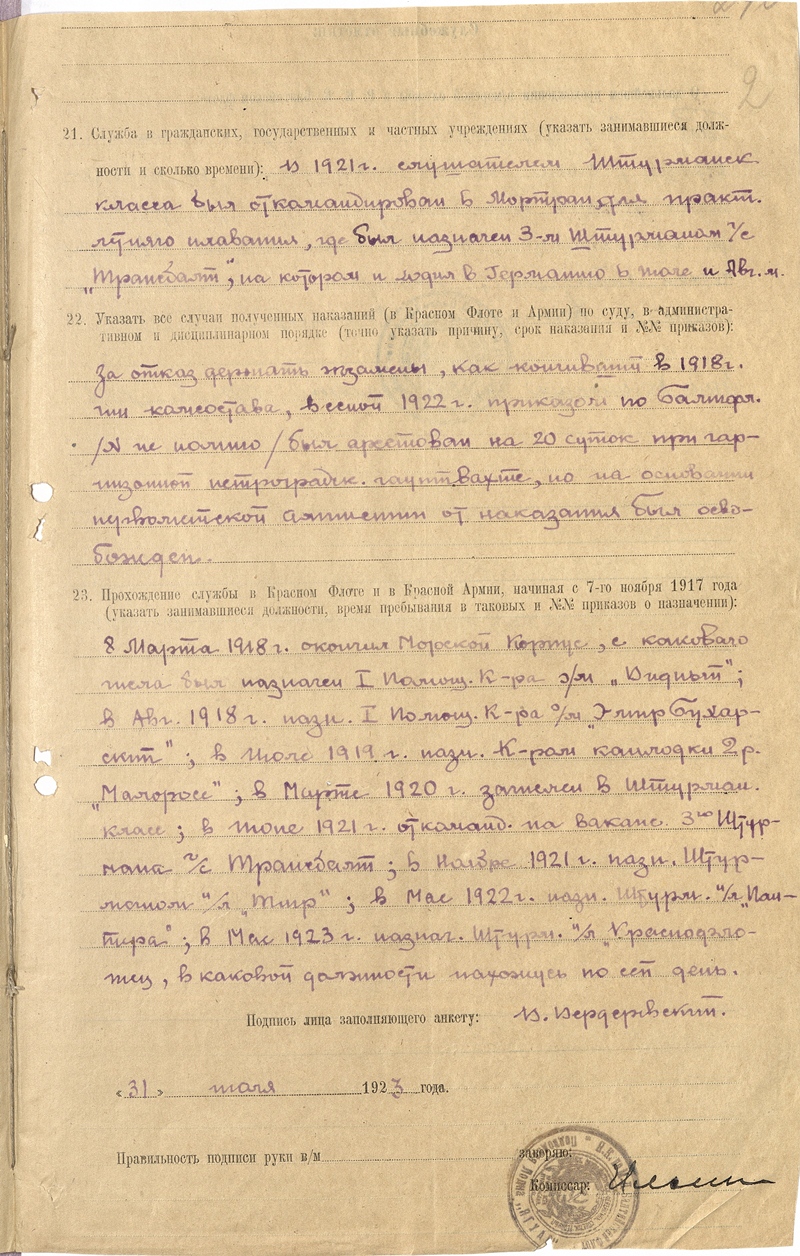 2
21. Служба в гражданских, государственных и частных учреждениях (указать занимавшиеся долж-
ности и сколько времени): В 1921 г. слушателем Штурманск.
класса был откомандирован в Мортран для практ.
летняго плавания, где был назначен 3-м Штурманом т/с
„Трансбалт", на котором и ходил в Германию в июле и Авг. м.
22. Указать все случаи полученных наказаний (в Красном Флоте и Армии) по суду, в администра-
тивном и дисциплинарном порядке (точно указать причину, срок наказания и №№ приказов):
За отказ держать экзамены, как кончивший в 1918 г.
комсостава, весной 1922 г. приказом по Балтфл.
/№ не помню/ был арестован на 20 суток при гар-
низонной петроградск. гауптвахте, но на основании
первомайской амнистии от наказания был осво-
божден.
23. Прохождение службы в Красном Флоте и в Красной Армии, начиная с 7-го ноября 1917 года
(указать занимавшиеся должности, время пребывания в таковых и №№ приказов о назначении):
8 Марта 1918 г. окончил Морской Корпус, с каковаго
числа был назначен I Помощ. К-ра э/м „Видный";
в Авг. 1918 г. назн. I Помощ. К-ра э/м „Эмир Бухар-
ский"; в Июле 1919 г. назн. К-ром канлодки 2 р.
„Малоросс"; в Марте 1920 г. зачислен в Штурман.
класс; в Июне 1921 г. откоманд. на ваканс. 3го Штур-
мана т/с Трансбалт; в Ноябре 1921 г. назн. Штур-
маном п/л „Тигр"; в Мае 1922 г. назн. Штурм. п/л „Пан-
тера"; в Мае 1923 г. назнач. Штурм. п/л „Краснофло-
тец, в каковой должности нахожусь по сей день.
Подпись лица заполняющего анкету: В. Вердеревский.
«31» июля 1923 года.
Правильность подписи руки в/м заверяю:
Комиссар: